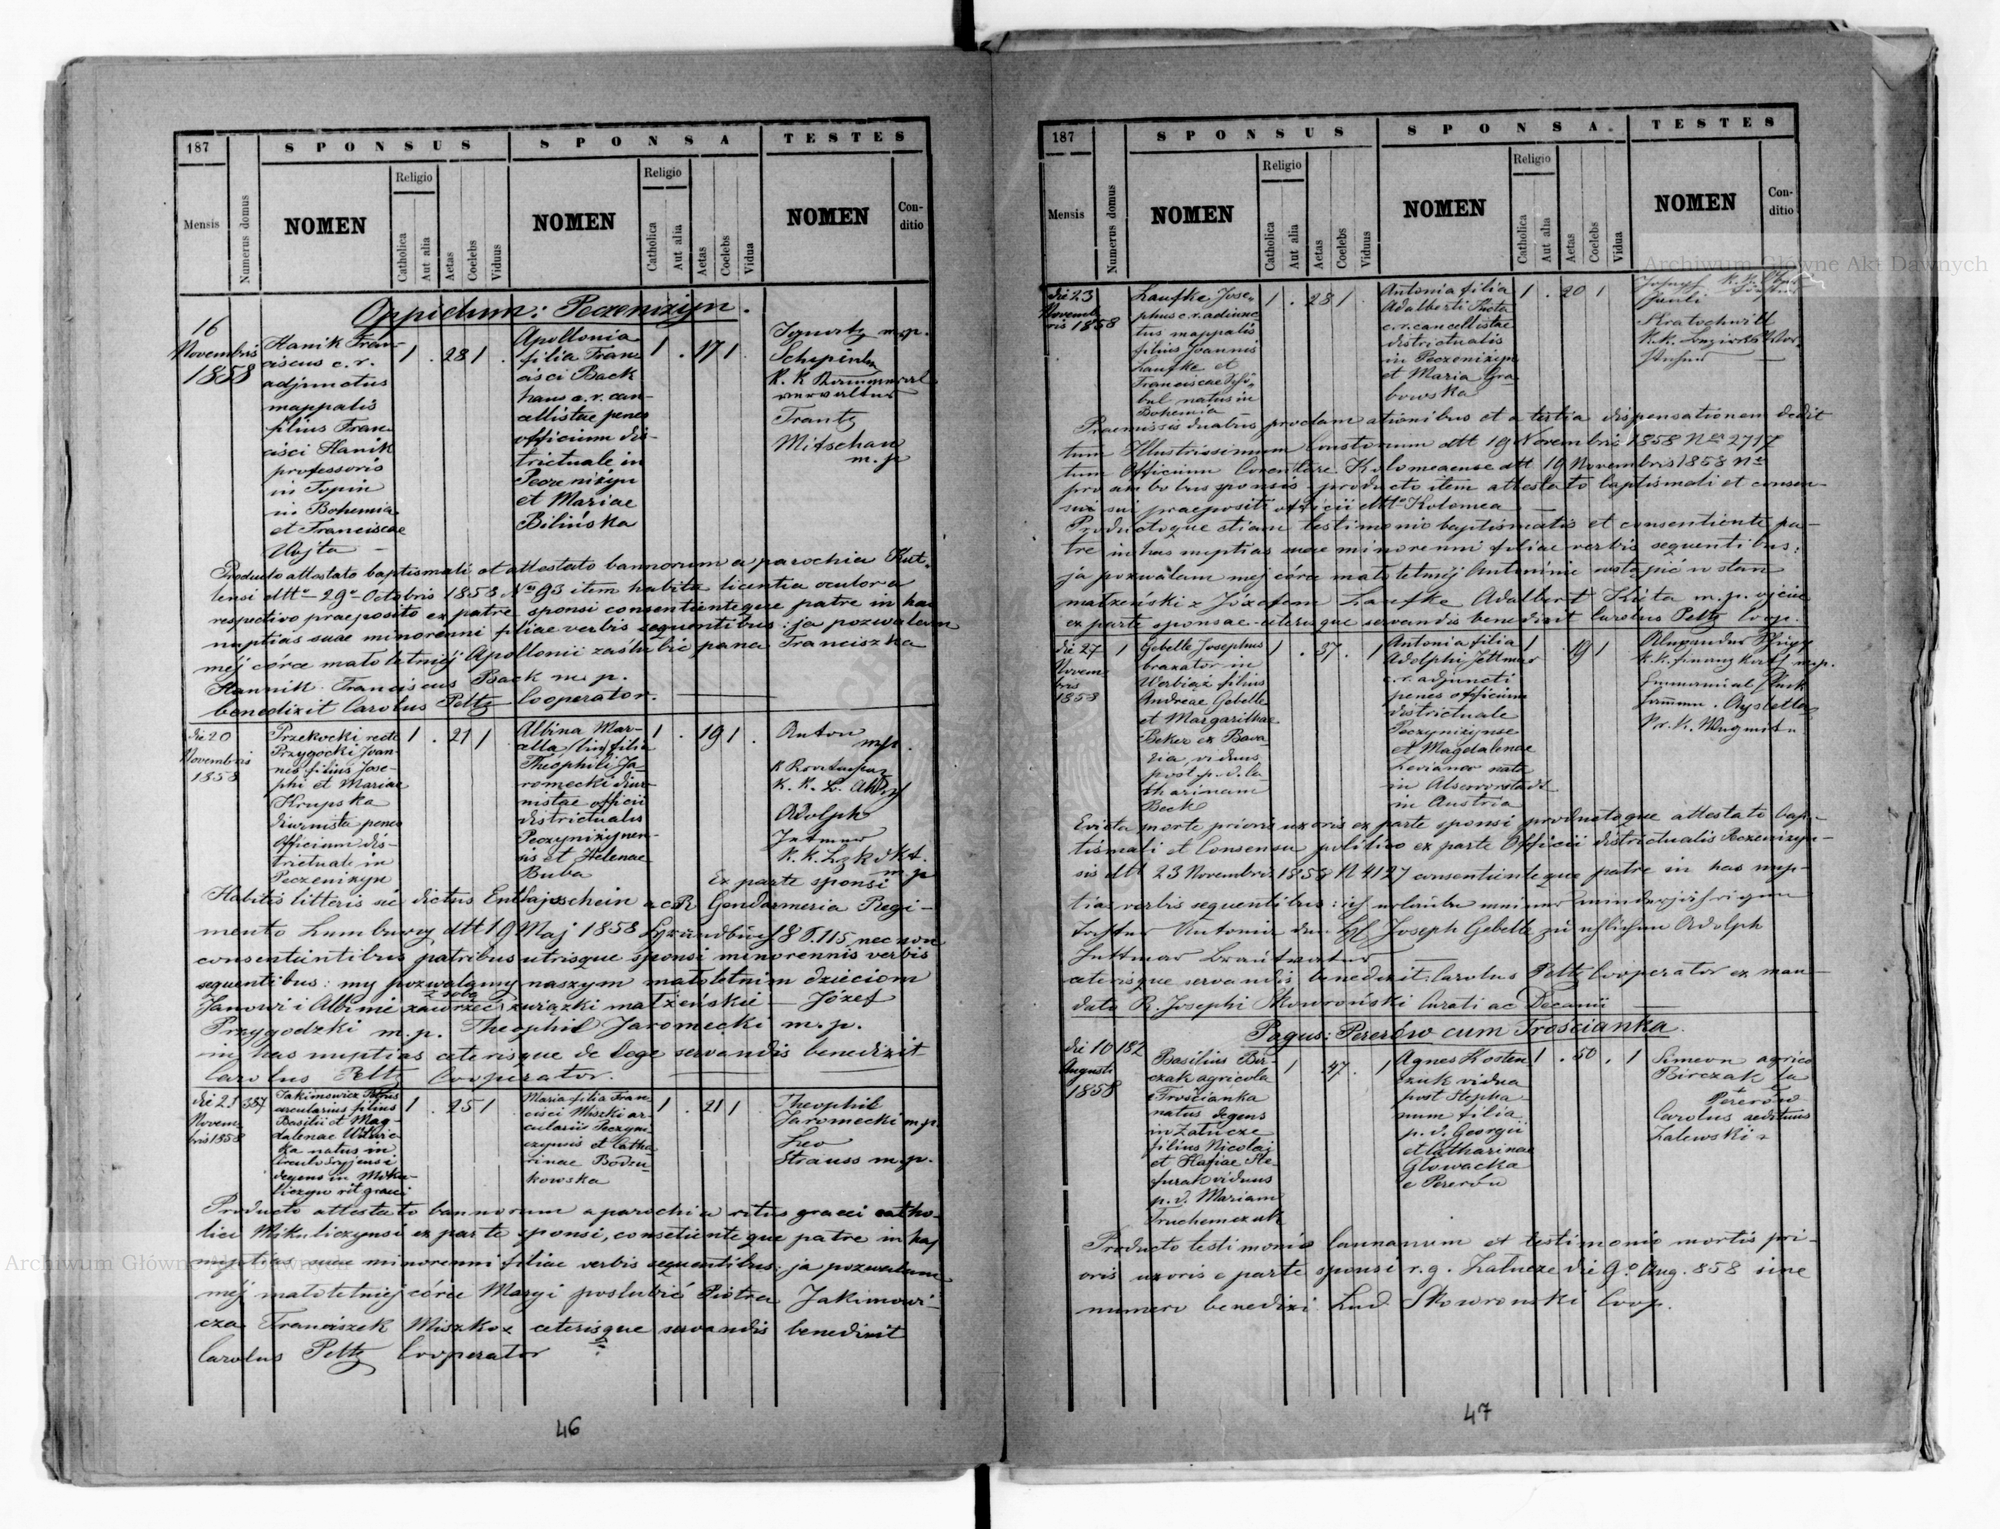 187
SPONSUS
SPONSA
TESTES
Mensis
Numerus domus
NOMEN
Religio
Catholica
Aut alia
Aetas
Coelebs
Viduus
NOMEN
Religio
Catholica
Aut alia
Aetas
Coelebs
Vidua
NOMEN
Con-
ditio
Oppidum: Peczenizyn.
16
Novembris
1858
Hanik Fran-
ciscus c. r.
adjunctus
mappalis
filius Fran-
cisci Hanik
professoris
in
in Bohemia
et Franciscae
Wojta
1 . 28 1
Apollonia
filia Fran
cisci Back
c. r. can-
cellistae penes
officium dis-
trictuale in
Peczenizyn
et Mariae
Bilińska
1 . 17 1
m.p.
K. K.
Frantz
Mitschan
m. p
Producto attestato baptismali et attestato bannorum a parochia Kut-
tensi dtto 29 Octobris 1858 No 93 item habita licentia
respectivo praeposito ex patre sponsi consentienteque patre in has
nuptias suae minorenni filiae verbis sequentibus: ja pozwalam
méj córce małoletniéj Apollonii zaślubić pana Franciszka
Hannik Franciscus Back m. p.
benedixit Carolus Peltz Cooperator.
die 20
Novembris
1858
Przekocki recte
Przygocki Joan-
nes filius Jose-
phi et Mariae
Krupska
diurnista penes
Officium dis-
trictuale in
Peczenizyn
1 . 21 1
Albina Mar-
cella filia
Theophili Ja-
romecki diur-
nistae officii
districtualis
Peczynizynen-
sis et Helenae
Buba
1 . 19 1
Anton
m.p.
K. K.
Adolph
m. p
Ex parte sponsi
Habitis litteris sic dictus Entlassschein a c. R. Gendarmeria Regi-
mento Lemburg dtt 19 Maj 1858 115 nec non
consentientibus patribus utrisque sponsi minorennis verbis
sequentibus: my pozwalamy naszym małoletnim dzieciom
z sobą
Janowi i Albinie zawrzeć związki małżeńskie — Józef
Przygodzki m. p. Theophil Jaromecki m. p.
in has nuptias ceterisque de lege servandis benedixit
Carolus Peltz Cooperator.
die 21
Novem-
bris 1858
387
Jakimowicz Petrus
arcularius filius
Basilii et Mag-
dalenae
ka natus in
circulo Stryjensi
degens in Miku-
liczyn rit graeci
1 . 25 1
Maria filia Fran-
cisci Miszki ar-
cularii Peczyn-
et Catha-
rinae Bodzu-
kowska
1 . 21 1
Theophil
Jaromecki m.p.
Leo
Strauss m.p.
Producto attestato bannorum a parochia ritus graeci catho-
lici Mikuliczynsi ex parte sponsi, consetienteque patre in has
nuptias suae minorenni filiae verbis sequentibus: ja pozwalam
méj małoletniej córce Maryi poslubić Piotra Jakimowi-
cza Franciszek Miszko x ceterisque servandis benedixit
Carolus Peltz Cooperator
46
187
SPONSUS
SPONSA.
TESTES
Mensis
Numerus domus
NOMEN
Religio
Catholica
Aut alia
Aetas
Coelebs
Viduus
NOMEN
Religio
Catholica
Aut alia
Aetas
Coelebs
Vidua
NOMEN
Con-
ditio
die 23
Novemb-
ris 1858
Laufke Jose-
phus c. r. adiunc
tus mappalis
filius Joannis
Laufke et
Franciscae
natus in
Bohemia
1 . 28 1
Antonia filia
Adalberti
c. r. cancellistae
districtualis
in Peczenizyn
et Maria Gra
bowska
1 . 20 1
Joseph
Kratochwill
K. K.
Praemissis duabus proclamationibus et a tertia dispensationem dedit
tum Illustrissimum Constorium dtt 19 Novembris 1858 No 2717
tum Officium Kolomeaense dtt 19 Novembris 1858 No
pro ambobus sponsis. producto item attestato baptismali et consen-
sus sui praepositi officii dtto Kolomea
Productoque etiam testimonio baptismatis et consentiente pa-
tre in has nuptias suae minorenni filiae verbis sequentibus:
ja pozwalam mej córce małoletnéj Antoninie wstąpić w stan
małżeński z Józefem Laufke Adalbert m. p. ojciec
ex parte sponsae ceterisque servandis benedixit Carolus Peltz Coop.
die 27
Novem-
bris
1858
1
Gebelle Josephus
braxator in
Werbiąż filius
Andreae Gebelle
et Margarithae
Beker ex Bava-
ria, viduus
post p. d. Ca
tharinam
Beck
1 . 37 . 1
Antonia filia
Adolphi Jettmar
c. r. adjuncti
penes officium
districtuale
Peczynizynse
et Magdalenae
nata
in Alservorstadt
in Austria
1 . 19 1
Alexander
K. K. m.p.
Emmanuel
Evicta morte prioris uxoris ex parte sponsi productoque attestato bap-
tismali et Consensu politico ex parte Officii districtualis Peczenizyn-
sis dtt 23 Novembris 1858 N 4127 consentienteque patre in has nup-
tias verbis sequentibus: ich erlaube meiner minderjährigen
Tochter Antonia den Joseph Gebelle zu ehlichen Adolph
Jettmar Brautvater
ceterisque servandis benedixit. Carolus Peltz Cooperator ex man-
dato R. Josephi Skowroński Curati ac Decanii
Pagus: Pererów cum Trościanka.
die 10
Augusti
1858
182
Basilius Bir-
czak agricola
e Trościanka
natus degens
in Załucze
filius Nicolaj
et Stefa-
furak viduus
p. d. Mariam
Truchemczuk
1 . 47 . 1
Agnes Kosten
czuk vidua
post Stepha-
num filia
p. d. Georgii
et Catharinae
Głowacka
e Pererów
1 . 50 . 1
Simeon agrico
Birczak la
e Pererów
Carolus aedituus
Zalewski
Producto testimonio bannorum et testimonio mortis pri-
oris uxoris e parte sponsi r. g. Załucze die 9o Aug. 858 sine
numero benedixi Lud. Skowronski Coop.
47
Archiwum Główne Akt Dawnych
Archiwum Główne Akt Dawnych